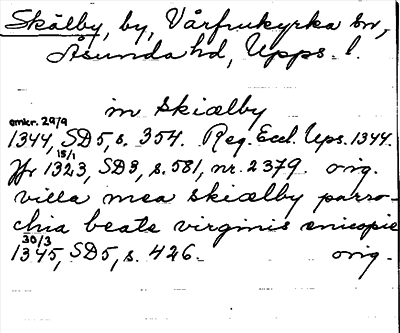 Skälby, by, Vårfrukyrka sn,
Åsunda hd, Upps. l.
in skiælby
omkr. 29/9
1344, SD5, s. 354. Reg. Eccl. Ups. 1344.
15/1
Jfr 1323, SD3, s. 581, nr. 2379 orig.
villa mea skiælby parro-
chia beate virginis enicopie
30/3
1345, SD5, s. 426. orig.